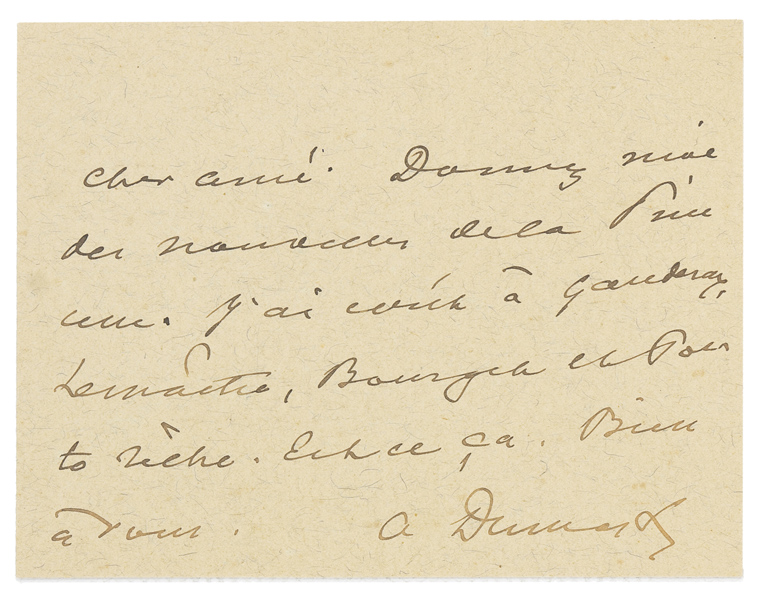 cher ami. Donnez moi
des nouvelles de la Prin
cesse. J'ai écrit à Ganderax,
Lemaître, Bourget et Por
to riche. Est ce ça. Bien
à vous. A Dumas f